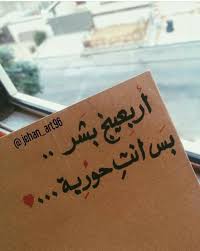 @johan_art96
أربعيخ بشر ..
بس انتِ حورية ...